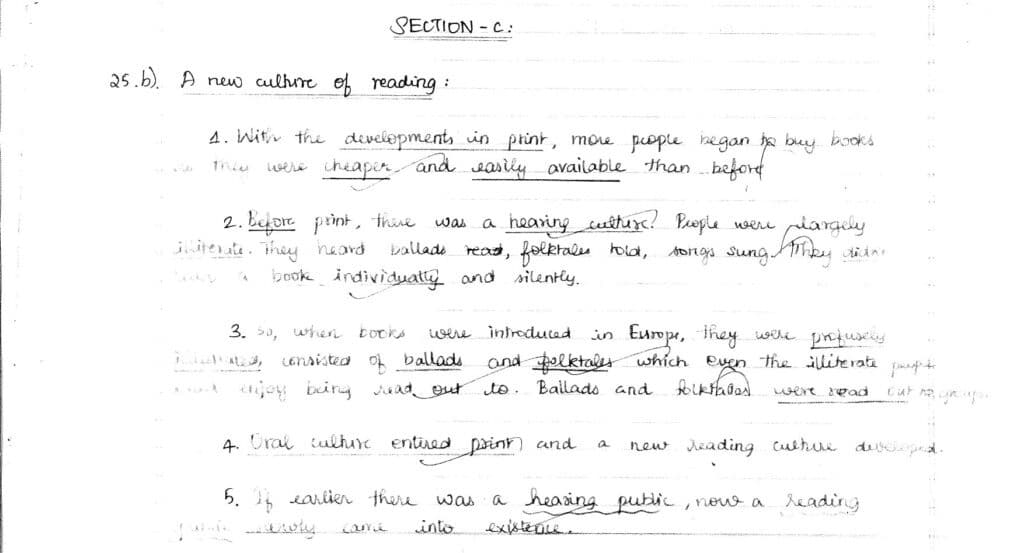 SECTION - C:
25.b). A new culture of reading :
1. With the developments in print, more people began to buy books
they were cheaper and easily available than before
2. Before print, there was a hearing culture. People were largely
illiterate. They heard ballads read, folktales told, songs sung. They didn't
a book individually and silently.
3. So, when books were introduced in Europe, they were profusely
illustrated, consisted of ballads and folktales which even the illiterate people
enjoy being read out to. Ballads and folktales were read out to groups.
4. Oral culture entired print and a new reading culture developed.
5. If earlier there was a hearing public, now a reading
public came into existence.